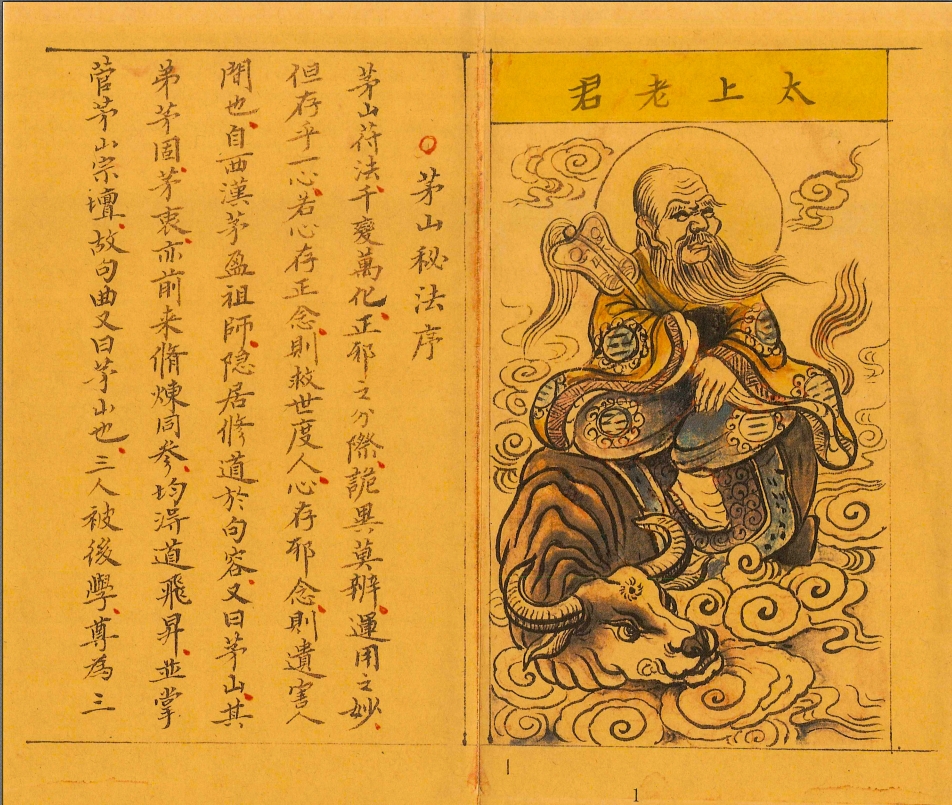 太上老君
茅山秘法序
茅山苻法、千變萬化、正邪之分際、詭異莫辨、運用之妙、
但存乎一心、若心存正念、則救世度人、心存邪念、則遺害人
間也、自西漢茅盈祖師、隐居修道於句容、又曰茅山、其
弟茅固、茅衷、亦前来脩煉同參、均得道飛昇、並掌
菅茅山宗壇、故句曲又曰茅山也、三人被後學、尊為三
1
1